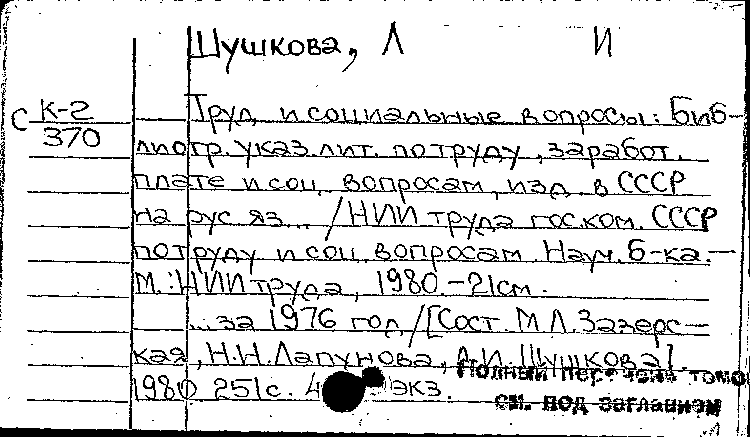 Шушкова, Л И
С К-2
370
Труд и социальные вопросы: Биб-
лиогр. указ. лит. по труду, заработ.
плате и соц. вопросам, изд. в СССР
на рус. яз... /НИИ труда гос. ком. СССР
по труду и соц. вопросам. Науч. б-ка.—
М.: НИИ труда, 1980.—21см.
...за 1976 год /[Сост. М.Л. Зазерс-
кая, Н.Н. Лапунова, Л.И. Шушкова].
1980 251с. экз.
Полный перечень томо
см. под заглавием